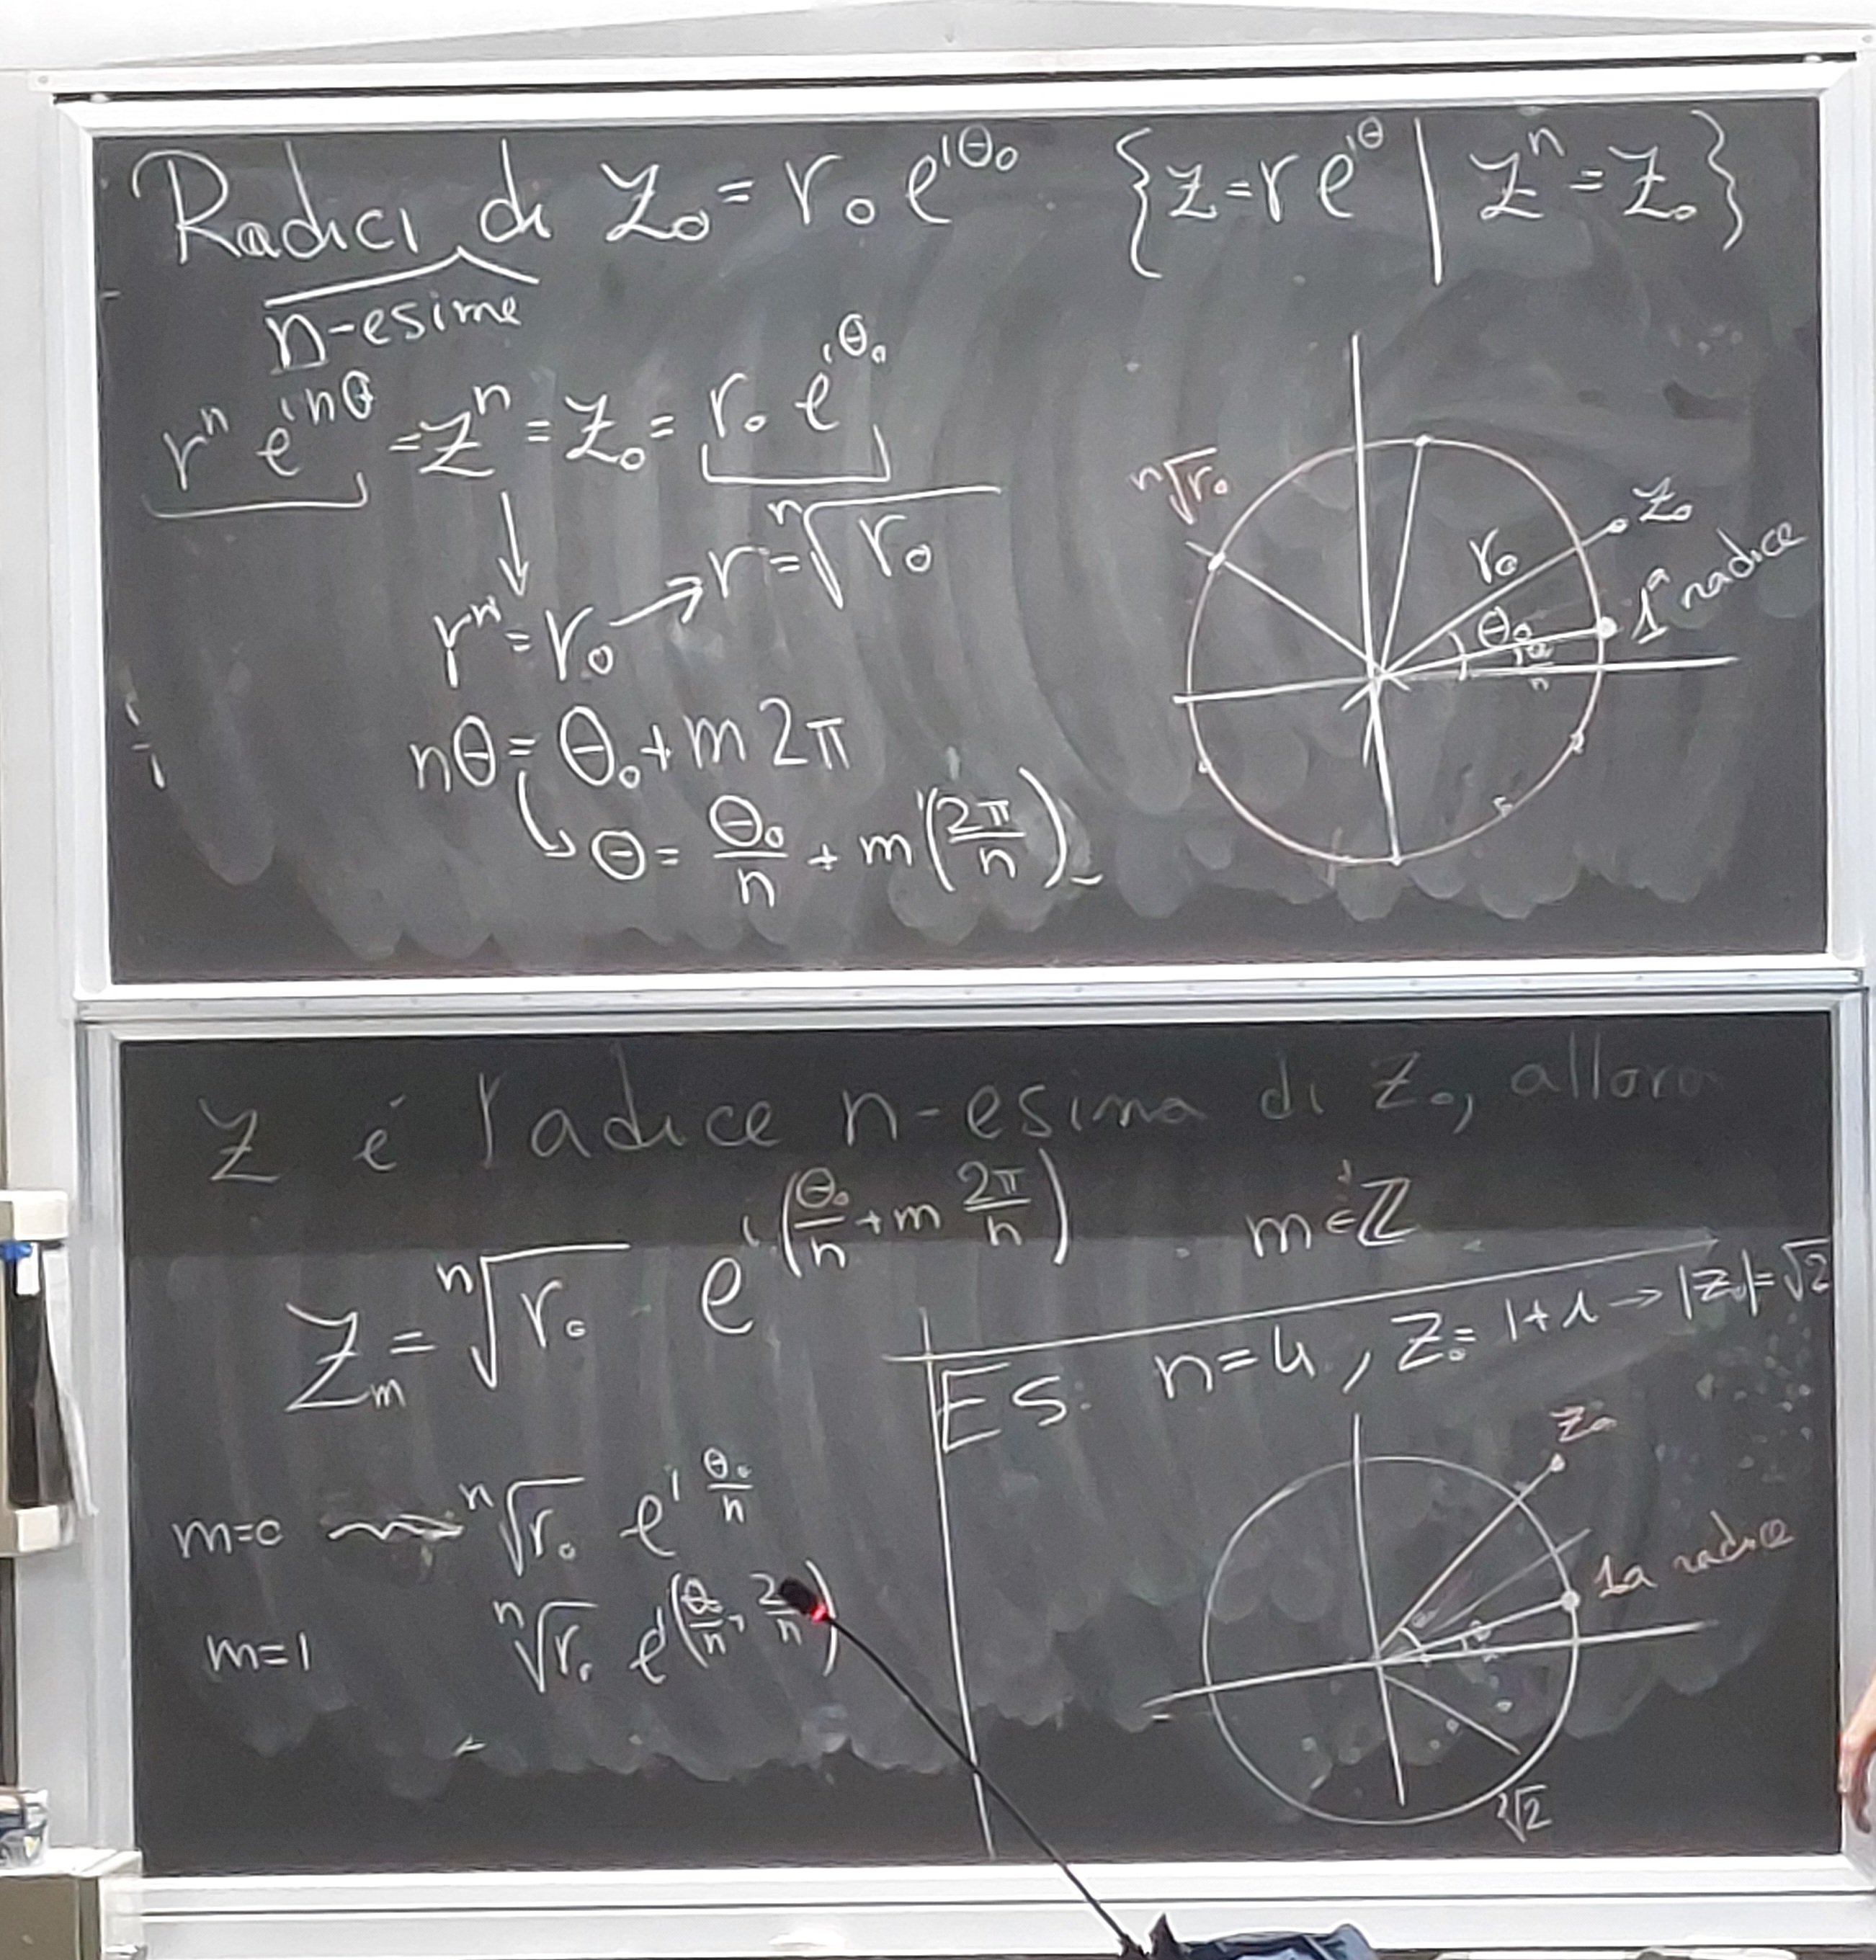 Radici di z₀ = r₀ e^{iθ₀} {z = r e^{iθ} | zⁿ = z₀}
n-esime
rⁿ e^{inθ} = zⁿ = z₀ = r₀ e^{iθ₀}
rⁿ = r₀ → r = ⁿ√r₀
nθ = θ₀ + m 2π
θ = θ₀/n + m (2π/n)
ⁿ√r₀
z₀
r₀
1ª radice
θ₀
θ₀/n
z é radice n-esima di z₀, allora
z_m = ⁿ√r₀ e^{i(θ₀/n + m 2π/n)} m ∈ ℤ
m=0 ⁿ√r₀ e^{i θ₀/n}
m=1
ⁿ√r₀
ES: n=4, z₀ = 1+i → |z₀| = √2
z₀
1a radice